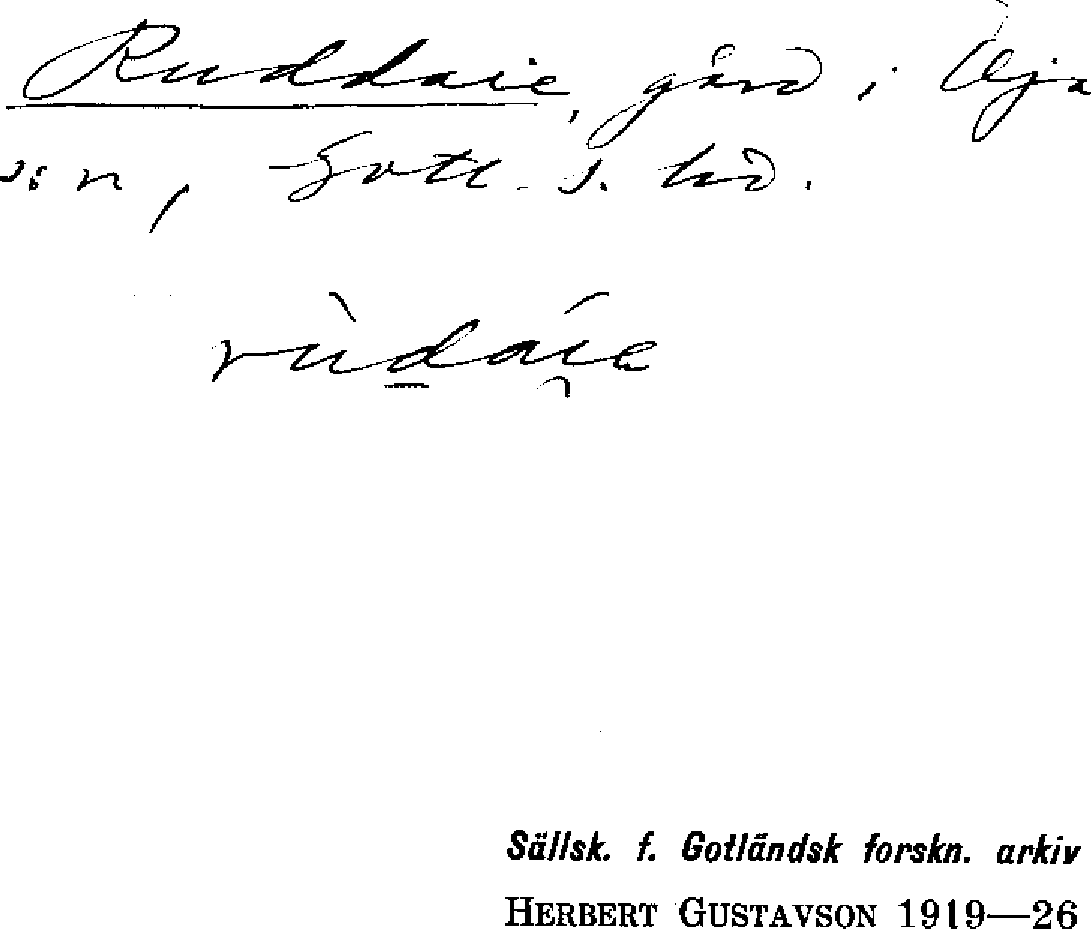 Ruddaie, gård i Öja
sn, Gotl. s. hd.
rùdáie
Sällsk. f. Gotländsk forskn. arkiv
HERBERT GUSTAVSON 1919—26